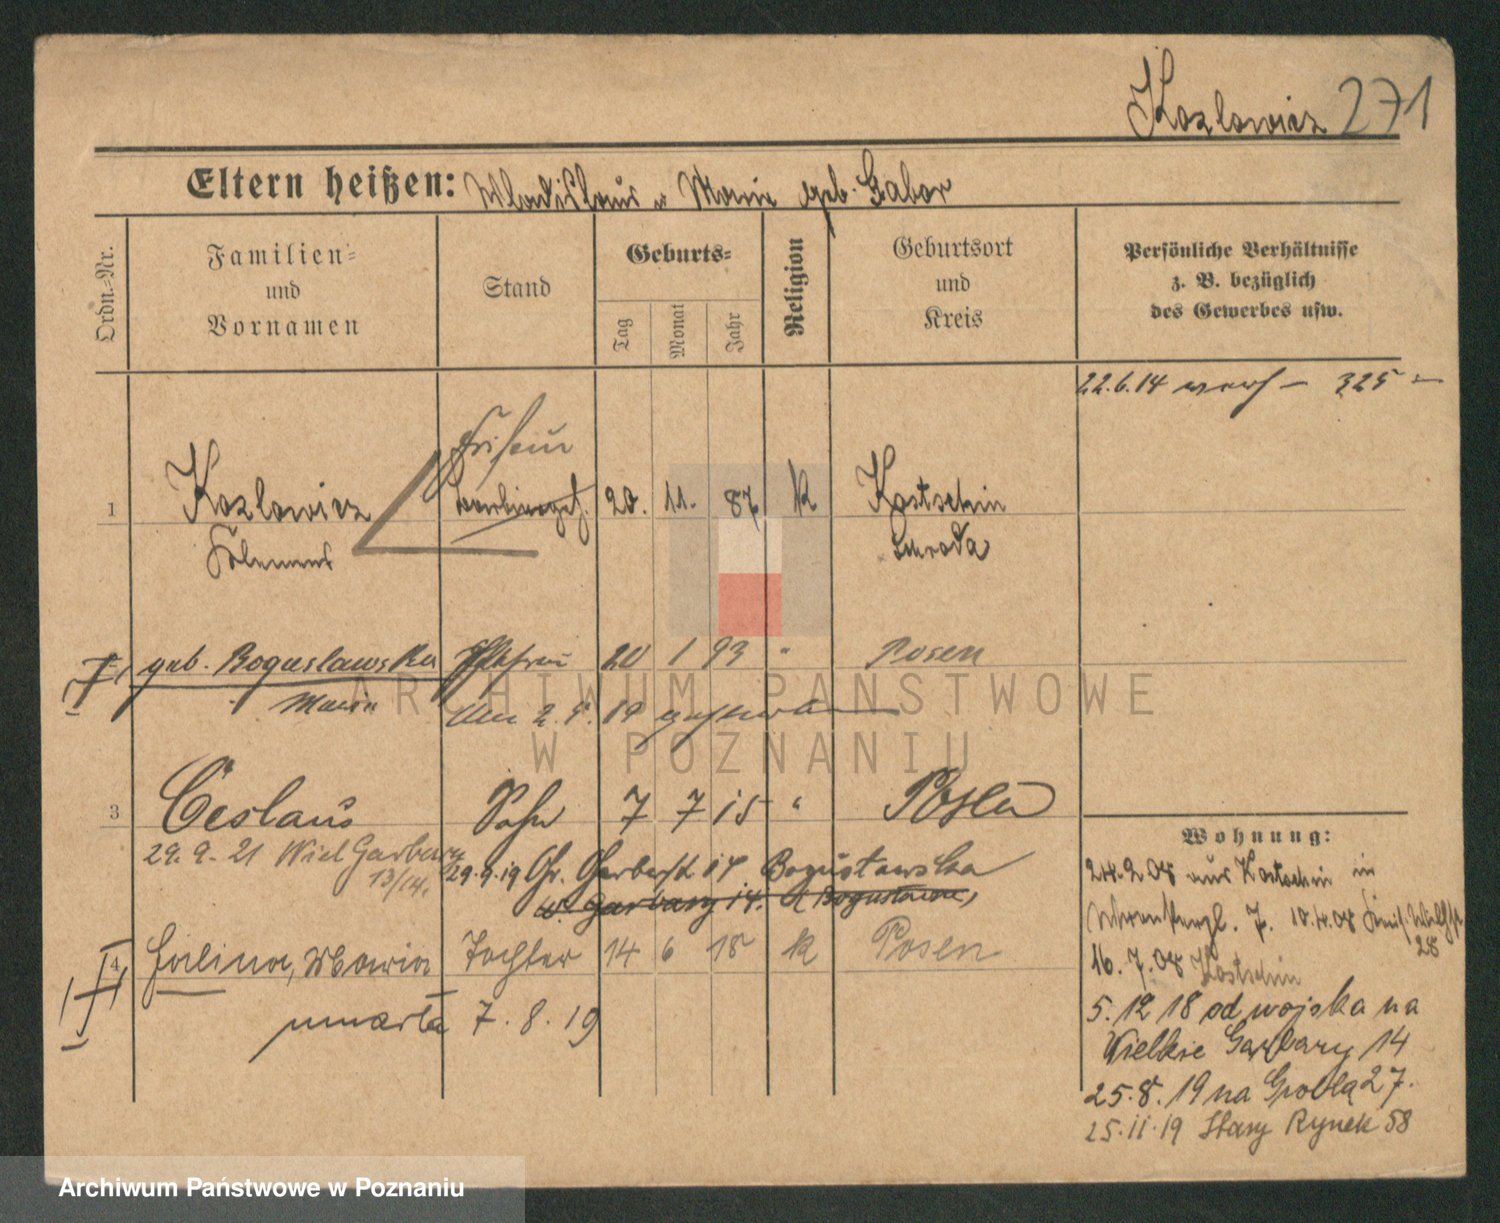 Kozlowicz 271
Eltern heißen: Wladislaus u Marie geb. Gabor
Ordn.-Nr.
Familien-
und
Vornamen
Stand
Geburts-
Tag
Monat
Jahr
Religion
Geburtsort
und
Kreis
Persönliche Verhältnisse
z. B. bezüglich
des Gewerbes usw.
22.6.14 325
Friseur
1 Kozlowicz 20. 11. 87 K Kostschin
Schroda
geb. Boguslawska Ehefrau 20 1 93 " Posen
Maria
Am 2. 5. 19
ARCHIWUM PAŃSTWOWE
W POZNANIU
3 Ceslaus Sohn 7 7 15 " Posen
29. 9. 21 Wiel Garbary
13/14.
29.9.19 Gr. Garberstr 14 Bogusławska
W. Garbary 14.
4 Halina, Maria Tochter 14 6 18 K Posen
umarła 7. 8. 19
Wohnung:
24.2.08 aus Kostschin in
7. 10.4.08
28
16. 7. 08 Kostschin
5. 12 18 od wojska na
Wielkie Garbary 14
25. 8. 19 na Groblą 27.
25. 11. 19 Stary Rynek 58
Archiwum Państwowe w Poznaniu